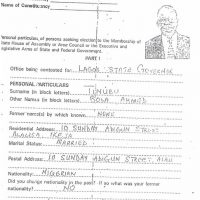 Name of Constituency
Personal particulars, of persons seeking election to the Membership of
State House of Assembly or Area Council or the Executive and
Legislative Arms of State and Federal Government.
PART I
Office being contested for: LAGOS STATE GOVERNOR
PERSONAL PARTICULARS
Surname (in block letters) TINUBU
Other Names (in block letters) BOLA AHMED
Former name(s) by which known: NONE
Residential Address: 10 SUNDAY ADIGUN STREET
ALAUSA IKEJA
Marital Status: MARRIED
Postal Address: 10 SUNDAY ADIGUN STREET,
Nationality: NIGERIAN
Did you change nationality in the past? If so what was your former
nationality? NO